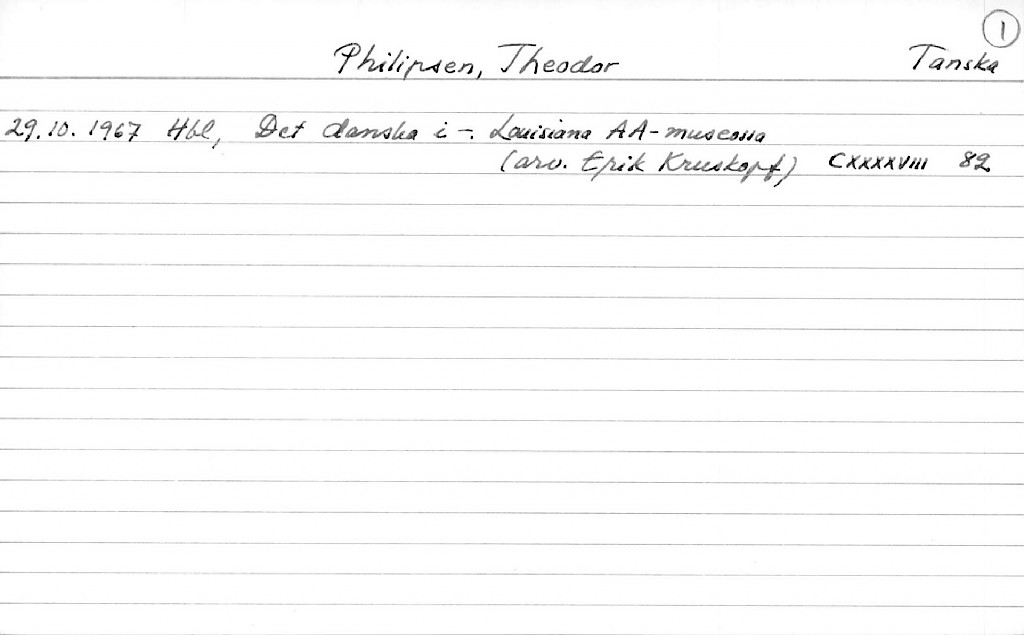 1
Philipsen, Theodor Tanska
29.10.1967 Hbl, Det danska i -. Louisiana AA-museossa
(arv. Erik Kruskopf) CXXXXVIII 82